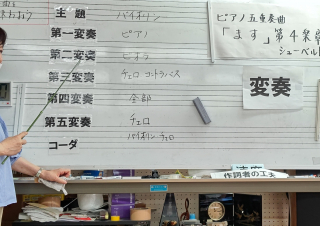 主題 バイオリン
第一変奏 ピアノ
第二変奏 ビオラ
第三変奏 チェロ コントラバス
第四変奏 全部
第五変奏 チェロ
コーダ バイオリン チェロ
ピアノ五重奏曲
「ます」第4楽章
シューベルト
変奏
作詞者の工夫